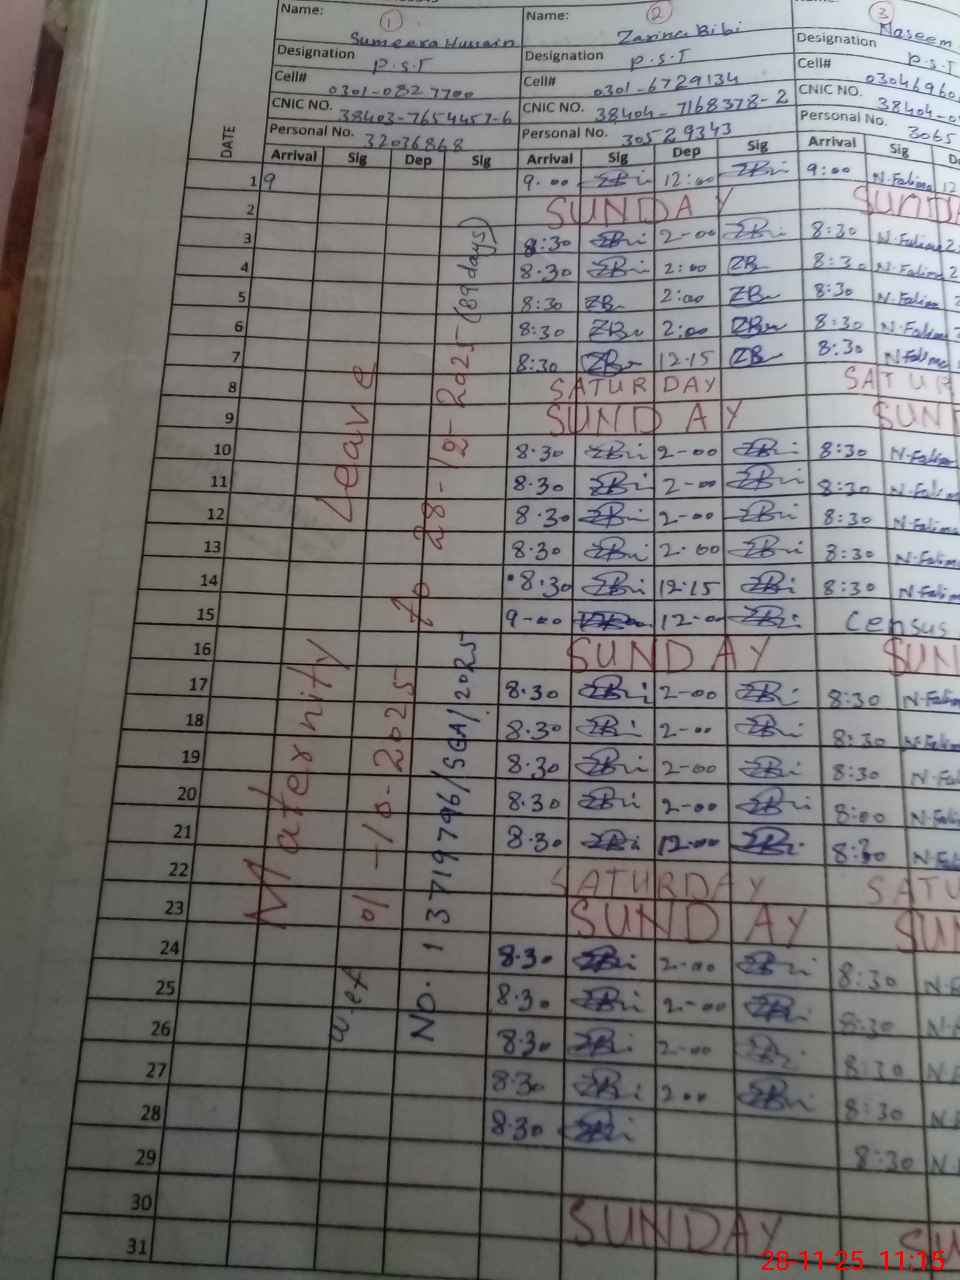 Name: ① Name: ② ③
Sumeera Hussain Zarina Bibi Naseem
Designation P.S.T Designation P.S.T Designation P.S.T
Cell# 0301-0827700 Cell# 0301-6729134 Cell# 0304696
CNIC NO. 38403-7654457-6 CNIC NO. 38404-7168378-2 CNIC NO. 38404-0
Personal No. 32036868 Personal No. 30529343 Personal No. 3065
DATE Arrival Sig Dep Sig Arrival Sig Dep Sig Arrival Sig
1 9 9.00 ZBi 12:00 ZBi 9:00 N.Fatima 12
2 SUNDAY SUNDA
3 8:30 ZBi 2-00 ZBi 8:30 N.Fatima 2
4 8.30 ZBi 2:00 ZBi 8:30 N.Fatima 2
5 8:30 ZBi 2:00 ZBi 8:30 N.Fatima
6 8:30 ZBi 2:00 ZBi 8:30 N.Fatima
7 8:30 ZBi 12.15 ZBi 8:30 N.Fatima
8 SATURDAY SATUR
9 SUNDAY SUND
10 8.30 ZBi 2-00 ZBi 8:30 N.Fatima
11 8.30 ZBi 2-00 ZBi 8:30 N.Fatima
12 8.30 ZBi 2-00 ZBi 8:30 N.Fatima
13 8.30 ZBi 2.00 ZBi 8:30 N.Fatima
14 8.30 ZBi 12.15 ZBi 8:30 N.Fatima
15 9-00 ZBi 12-00 ZBi Census
16 SUNDAY SUN
17 8.30 ZBi 2-00 ZBi 8:30 N.Fatima
18 8.30 ZBi 2-00 ZBi 8:30 N.Fatima
19 8.30 ZBi 2-00 ZBi 8:30 N.Fati
20 8.30 ZBi 2-00 ZBi 8:00 N.Fati
21 8.30 ZBi 12.00 ZBi 8:30 N.Fat
22 SATURDAY SATU
23 SUNDAY SUN
24 8.30 ZBi 2-00 ZBi 8:30 N.F
25 8.30 ZBi 2-00 ZBi 8:30 N.F
26 8.30 ZBi 2-00 ZBi 8:30 N.F
27 8.30 ZBi 2 00 ZBi 8:30 N.F
28 8.30 ZBi 8:30 N.
29
30 SUNDAY SU
31
Maternity Leave
w.ef 01-10-2025 to 28-12-2025 (89 days)
No. 13719796/SGA/2025
28-11-25 11:15